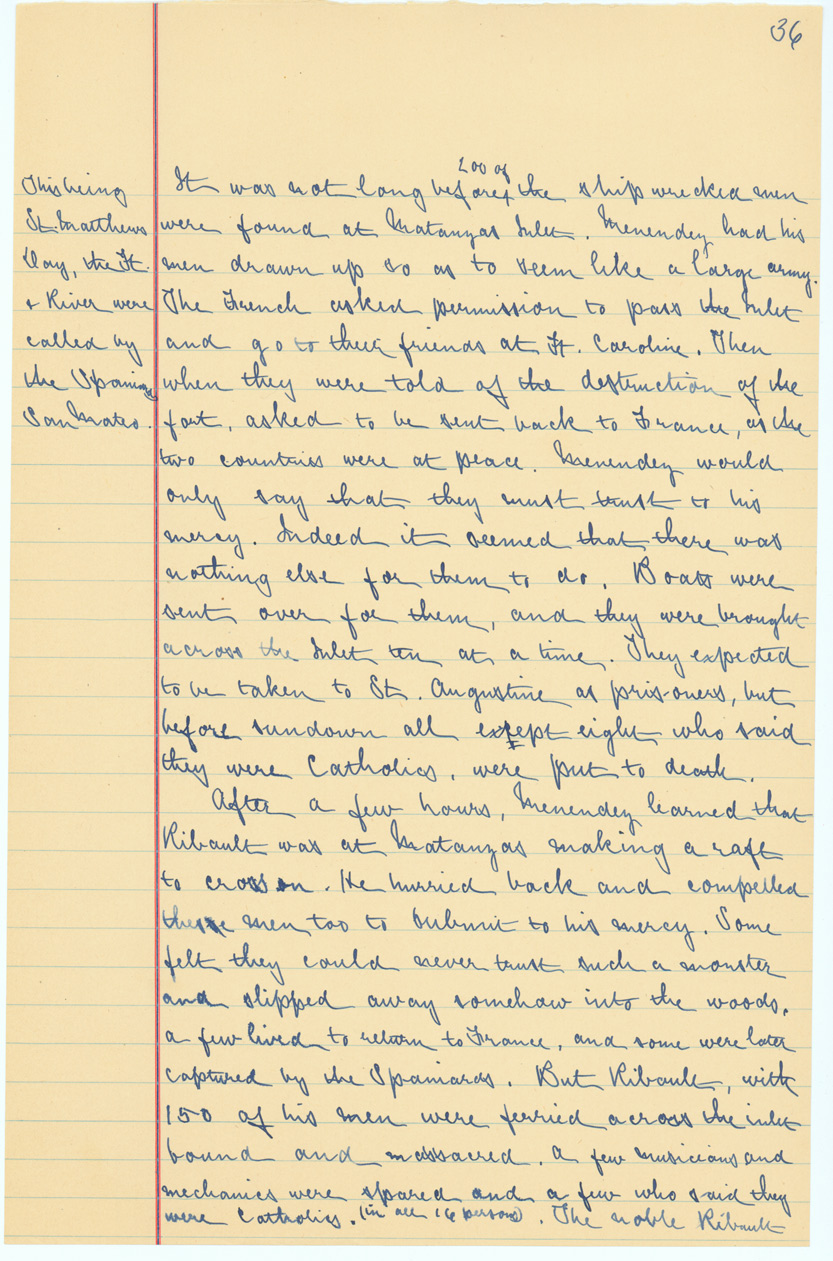 36
This being
St. Matthews
Day, the Ft.
& River were
called by
the Spaniards
San Mateo.
200 of
It was not long before the ship wrecked men
were found at Matanzas Inlet. Menendez had his
men drawn up so as to seem like a large army.
The French asked permission to pass the Inlet
and go to their friends at Ft. Caroline. Then
when they were told of the destruction of the
fort, asked to be sent back to France, as the
two countries were at peace. Menendez would
only say that they must trust to his
mercy. Indeed it seemed that there was
nothing else for them to do. Boats were
sent over for them, and they were brought
across the Inlet ten at a time. They expected
to be taken to St. Augustine as prisoners, but
before sundown all except eight who said
they were Catholics, were put to death.
After a few hours, Menendez learned that
Ribault was at Matanzas making a raft
to cross on. He hurried back and compelled
these men too to submit to his mercy. Some
felt they could never trust such a monster
and slipped away somehow into the woods,
a few lived to return to France, and some were later
captured by the Spaniards. But Ribault, with
150 of his men were ferried across the inlet
bound and massacred. A few musicians and
mechanics were spared and a few who said they
were Catholics. (in all 16 persons). The noble Ribault